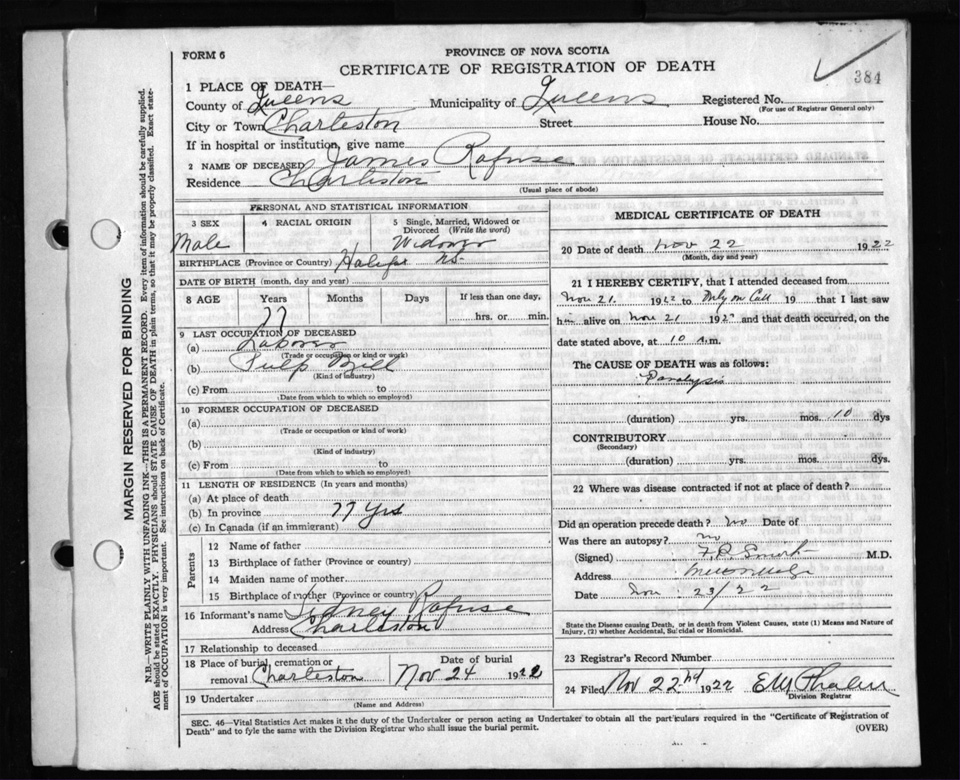 FORM 6
PROVINCE OF NOVA SCOTIA
CERTIFICATE OF REGISTRATION OF DEATH
384
1 PLACE OF DEATH—
County of Queens Municipality of Queens Registered No.
(For use of Registrar General only)
City or Town Charleston Street House No.
If in hospital or institution, give name
2 NAME OF DECEASED James Rafuse
Residence Charleston
(Usual place of abode)
PERSONAL AND STATISTICAL INFORMATION
3 SEX 4 RACIAL ORIGIN 5 Single, Married, Widowed or Divorced (Write the word)
Male Widower
BIRTHPLACE (Province or Country) Halifax NS
DATE OF BIRTH (month, day and year)
8 AGE Years Months Days If less than one day,
77 hrs. or min.
9 LAST OCCUPATION OF DECEASED
(a) Laborer
(Trade or occupation or kind of work)
(b) Pulp Mill
(Kind of industry)
(c) From to
(Date from which to which so employed)
10 FORMER OCCUPATION OF DECEASED
(a)
(Trade or occupation or kind of work)
(b)
(Kind of industry)
(c) From to
(Date from which to which so employed)
11 LENGTH OF RESIDENCE (In years and months)
(a) At place of death
(b) In province 77 yrs
(c) In Canada (if an immigrant)
Parents
12 Name of father
13 Birthplace of father (Province or country)
14 Maiden name of mother
15 Birthplace of mother (Province or country)
16 Informant's name Sidney Rafuse
Address Charleston
17 Relationship to deceased
18 Place of burial, cremation or removal Charleston Date of burial Nov 24 1922
19 Undertaker
(Name and Address)
MEDICAL CERTIFICATE OF DEATH
20 Date of death Nov 22 1922
(Month, day and year)
21 I HEREBY CERTIFY, that I attended deceased from
Nov 21 1922 to Only on Call 19 that I last saw
him alive on Nov 21 1922 and that death occurred, on the
date stated above, at 10 a.m.
The CAUSE OF DEATH was as follows:
Paralysis
(duration) yrs. mos. 10 dys
CONTRIBUTORY
(Secondary)
(duration) yrs. mos. dys.
22 Where was disease contracted if not at place of death?
Did an operation precede death? no Date of
Was there an autopsy? no
(Signed) F.P. Smith M.D.
Address
Date Nov 23/22
State the Disease causing Death, or in death from Violent Causes, state (1) Means and Nature of
Injury, (2) whether Accidental, Suicidal or Homicidal.
23 Registrar's Record Number
24 Filed Nov 22nd 1922 E W Phalen
Division Registrar
SEC. 46—Vital Statistics Act makes it the duty of the Undertaker or person acting as Undertaker to obtain all the particulars required in the "Certificate of Registration of
Death" and to fyle the same with the Division Registrar who shall issue the burial permit. (OVER)
MARGIN RESERVED FOR BINDING
N.B.—WRITE PLAINLY WITH UNFADING INK—THIS IS A PERMANENT RECORD. Every item of information should be carefully supplied.
AGE should be stated EXACTLY. PHYSICIANS should STATE CAUSE OF DEATH in plain terms, so that it may be properly classified. Exact state-
ment of OCCUPATION is very important. See instructions on back of Certificate.